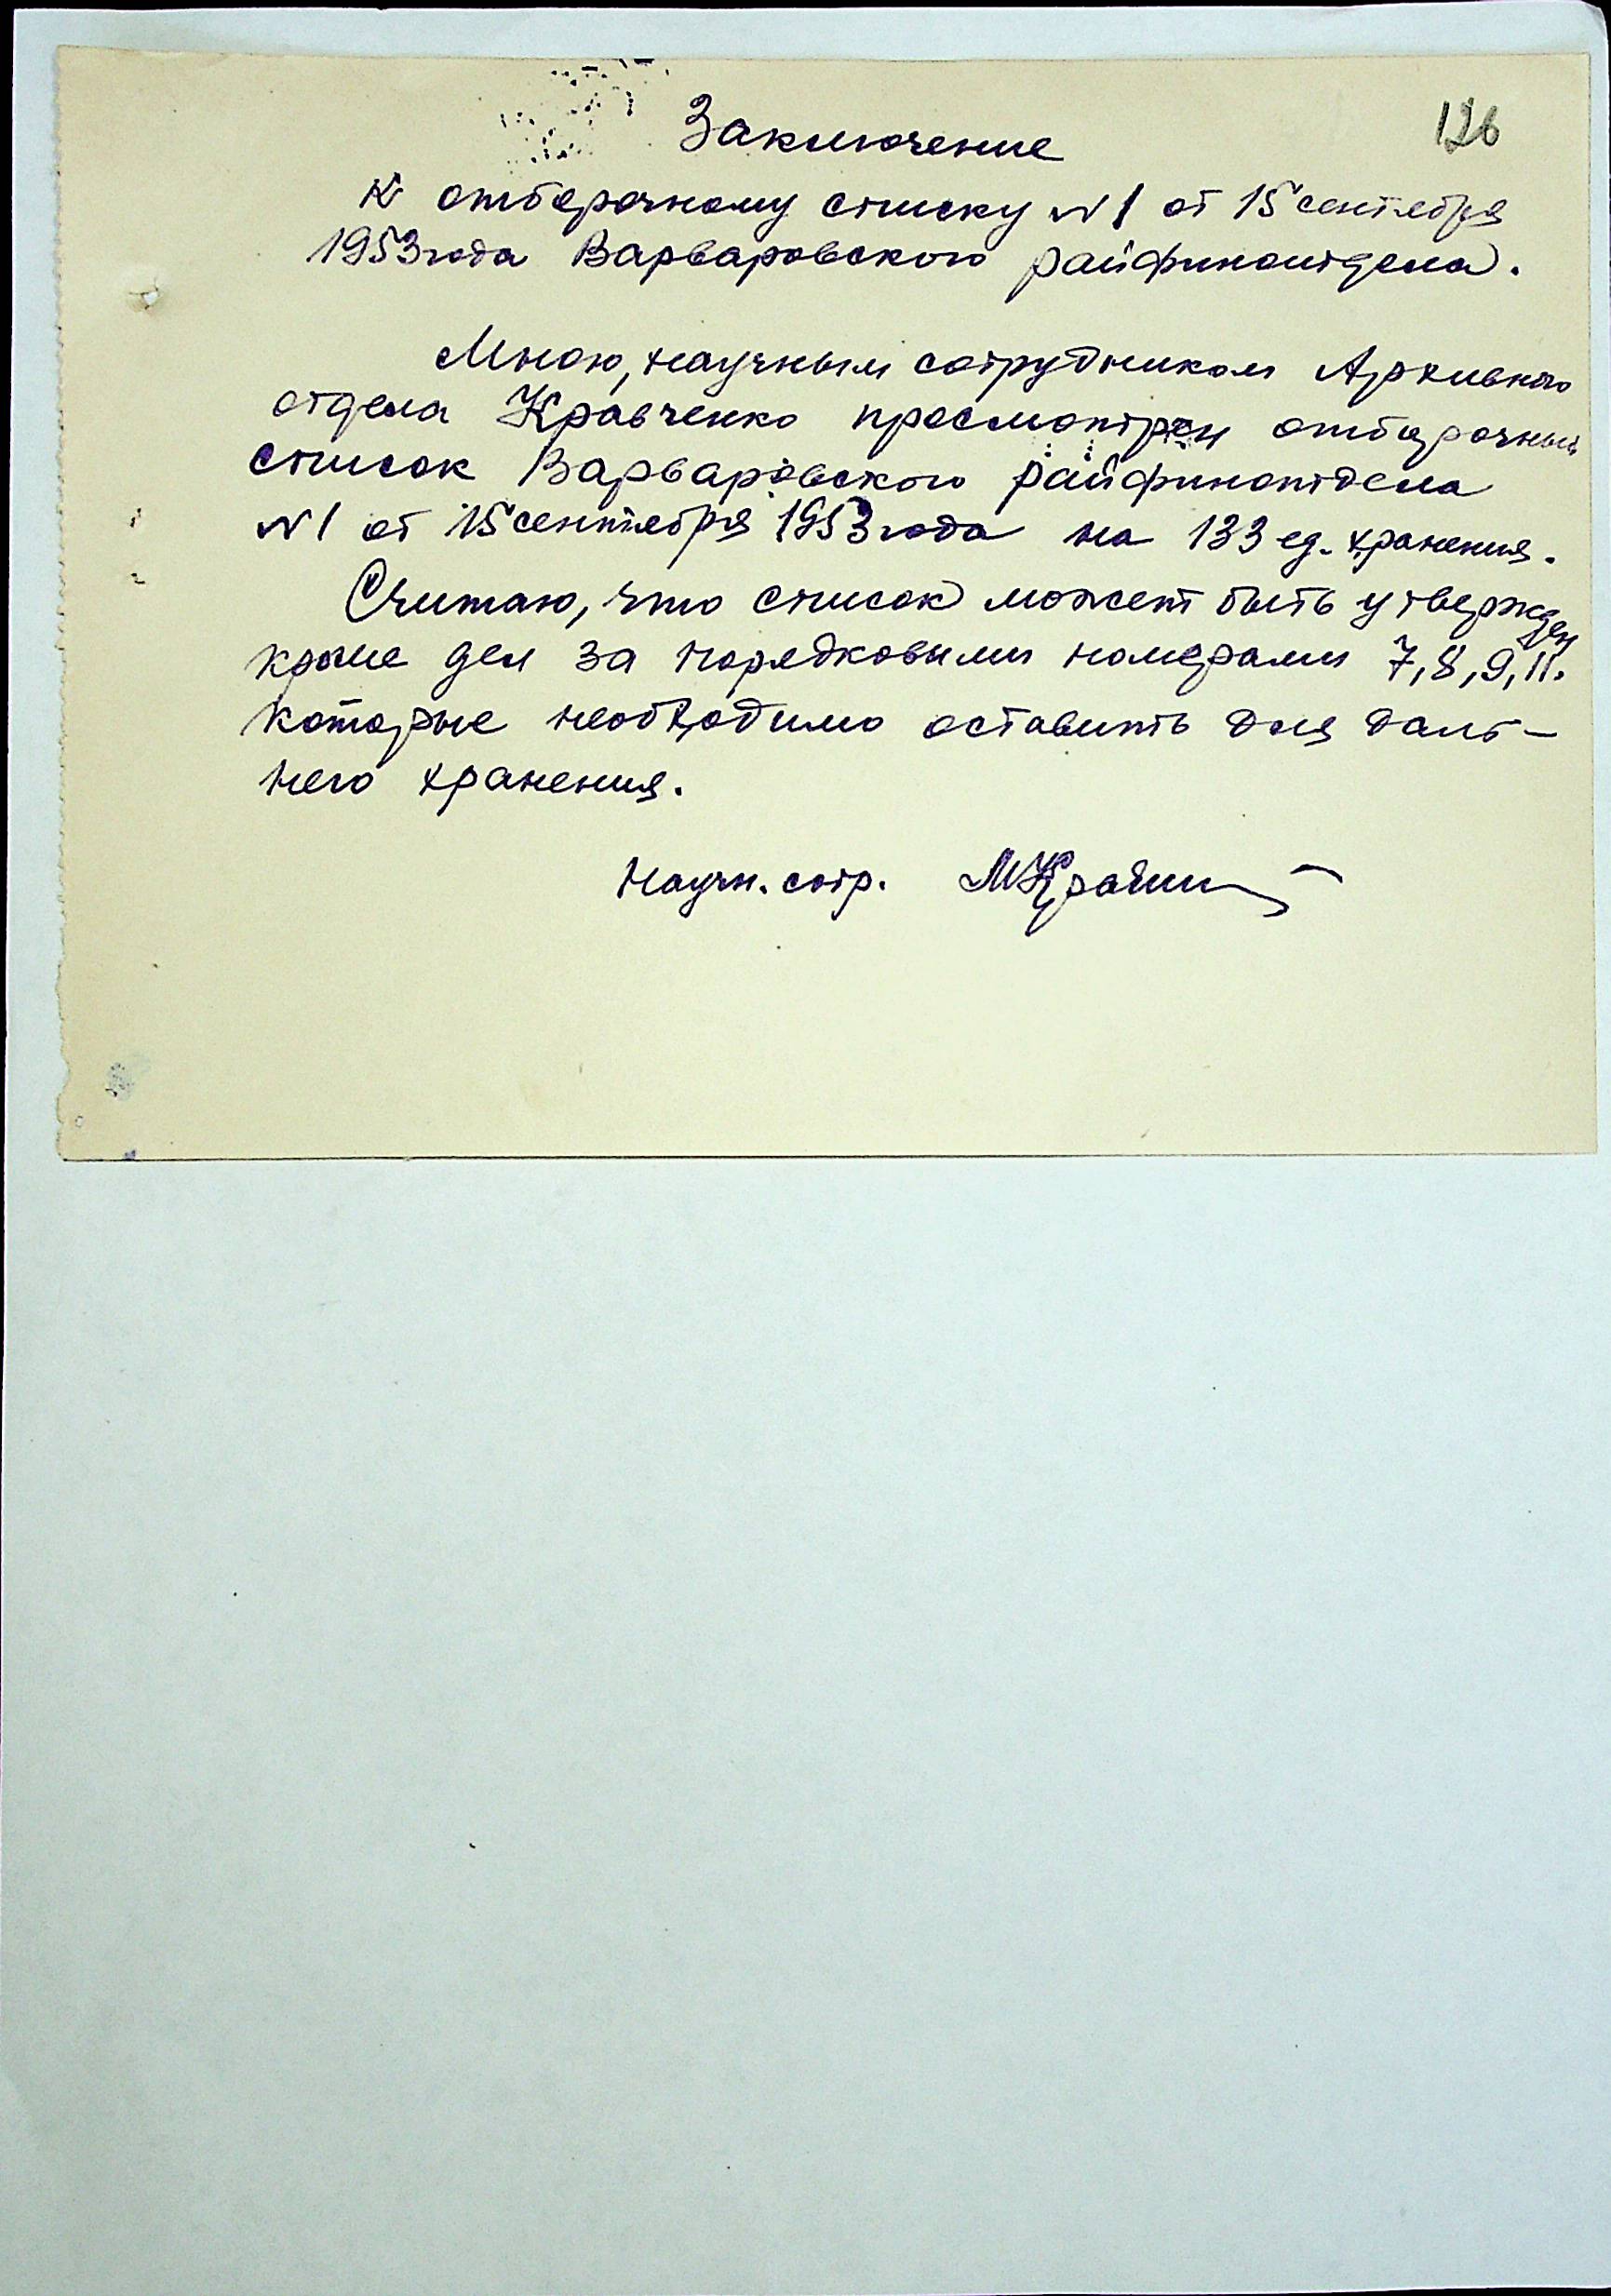 126
Заключение
к отборочному списку №1 от 15 сентября
1953 года Варваровского райфинотдела.
Мною, научным сотрудником Архивного
отдела Кравченко просмотрен отборочный
список Варваровского райфинотдела
№1 от 15 сентября 1953 года на 133 ед. хранения.
Считаю, что список может быть утвержден
кроме дел за порядковыми номерами 7, 8, 9, 11.
которые необходимо оставить для даль-
него хранения.
Научн. сотр.